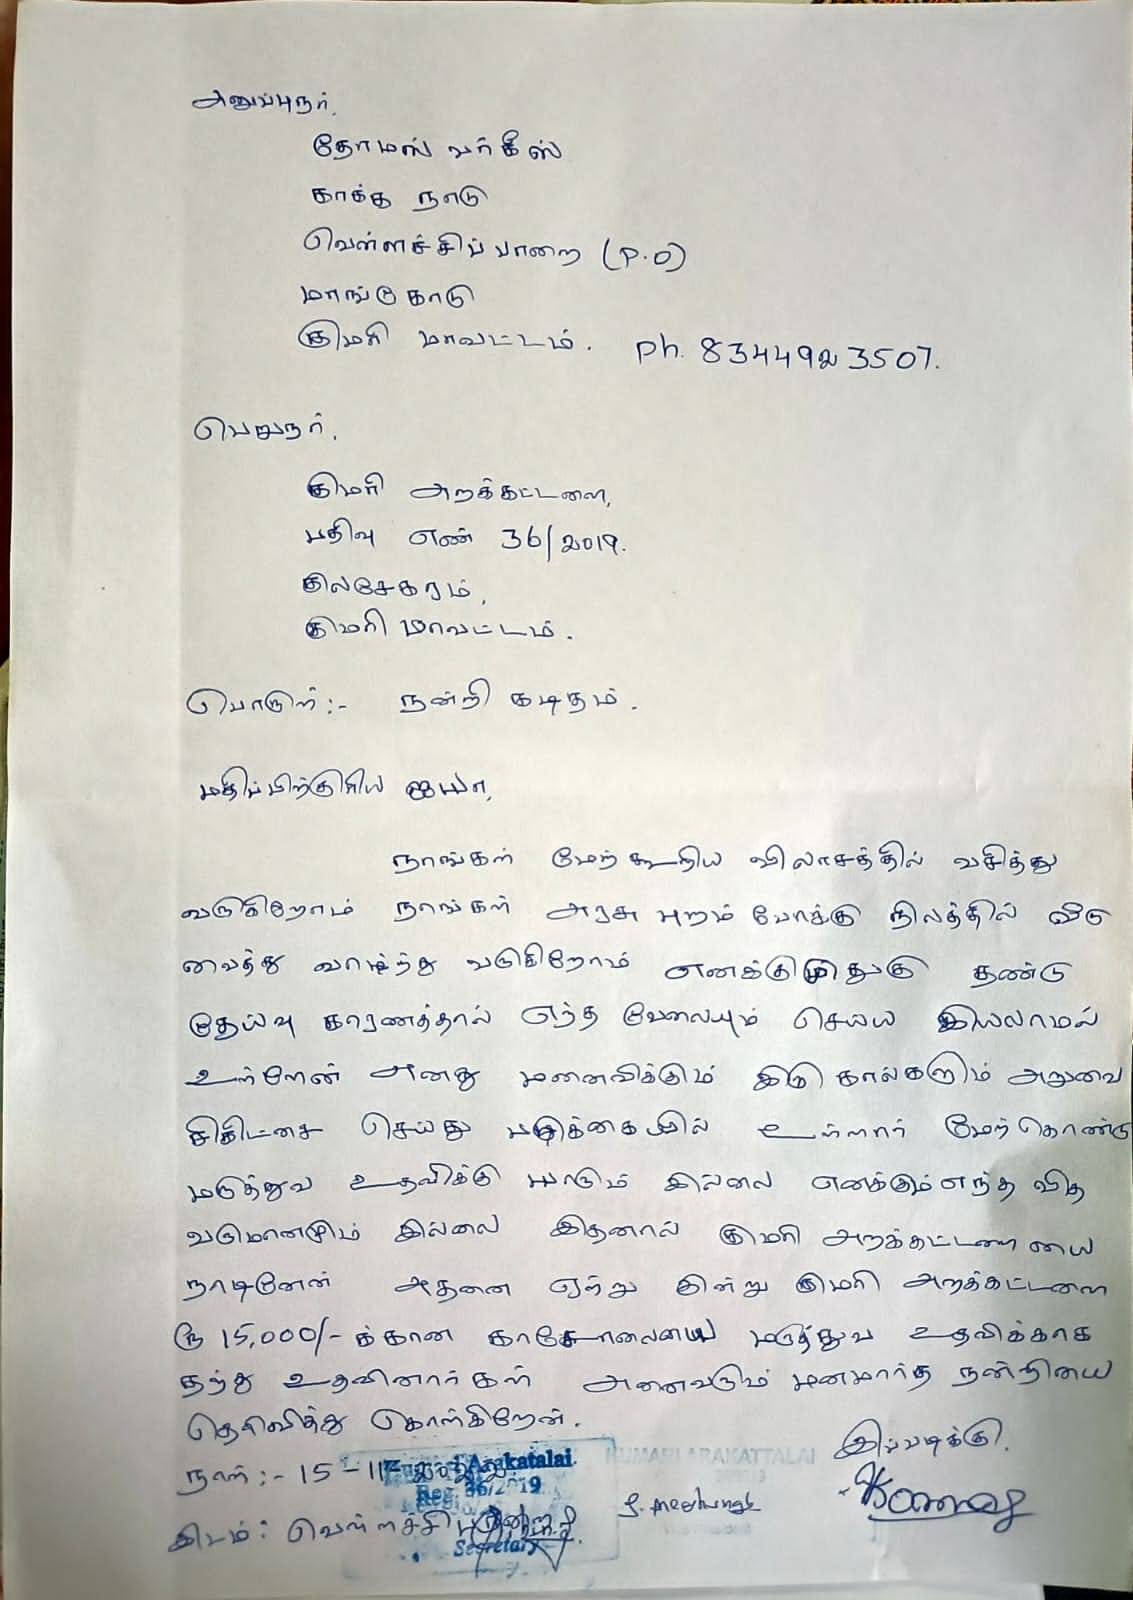 அனுப்புநர்,
தோமஸ் வர்கீஸ்
காக்க நாடு
வெள்ளச்சிப்பாறை (P.O)
மாங்கோடு
குமரி மாவட்டம். Ph. 8344923507.
பெறுநர்,
குமரி அறக்கட்டளை,
பதிவு எண் 36/2019.
குலசேகரம்,
குமரி மாவட்டம்.
பொருள்:- நன்றி கடிதம்.
மதிப்பிற்குரிய ஐயா,
நாங்கள் மேற்கூறிய விலாசத்தில் வசித்து
வருகிறோம் நாங்கள் அரசு புறம்போக்கு நிலத்தில் வீடு
வைத்து வாழ்ந்து வருகிறோம் எனக்கு முதுகு தண்டு
தேய்வு காரணத்தால் எந்த வேலையும் செய்ய இயலாமல்
உள்ளேன் எனது மனைவிக்கும் இரு கால்களும் அறுவை
சிகிட்சை செய்து படுக்கையில் உள்ளார் மேற்கொண்டு
மருத்துவ உதவிக்கு யாரும் இல்லை எனக்கும் எந்த வித
வருமானமும் இல்லை இதனால் குமரி அறக்கட்டளையை
நாடினேன் அதனை ஏற்று இன்று குமரி அறக்கட்டளை
ரூ 15,000/- க்கான காசோலையை மருத்துவ உதவிக்காக
தந்து உதவினார்கள் அனைவரும் மனமார்ந்த நன்றியை
தெரிவித்து கொள்கிறேன்.
இப்படிக்கு,
நாள்:- 15-11- Arakatalai KUMARI ARAKATTALAI
Reg. 36/2019
இடம்: வெள்ளச்சிப்பாறை
Secretary